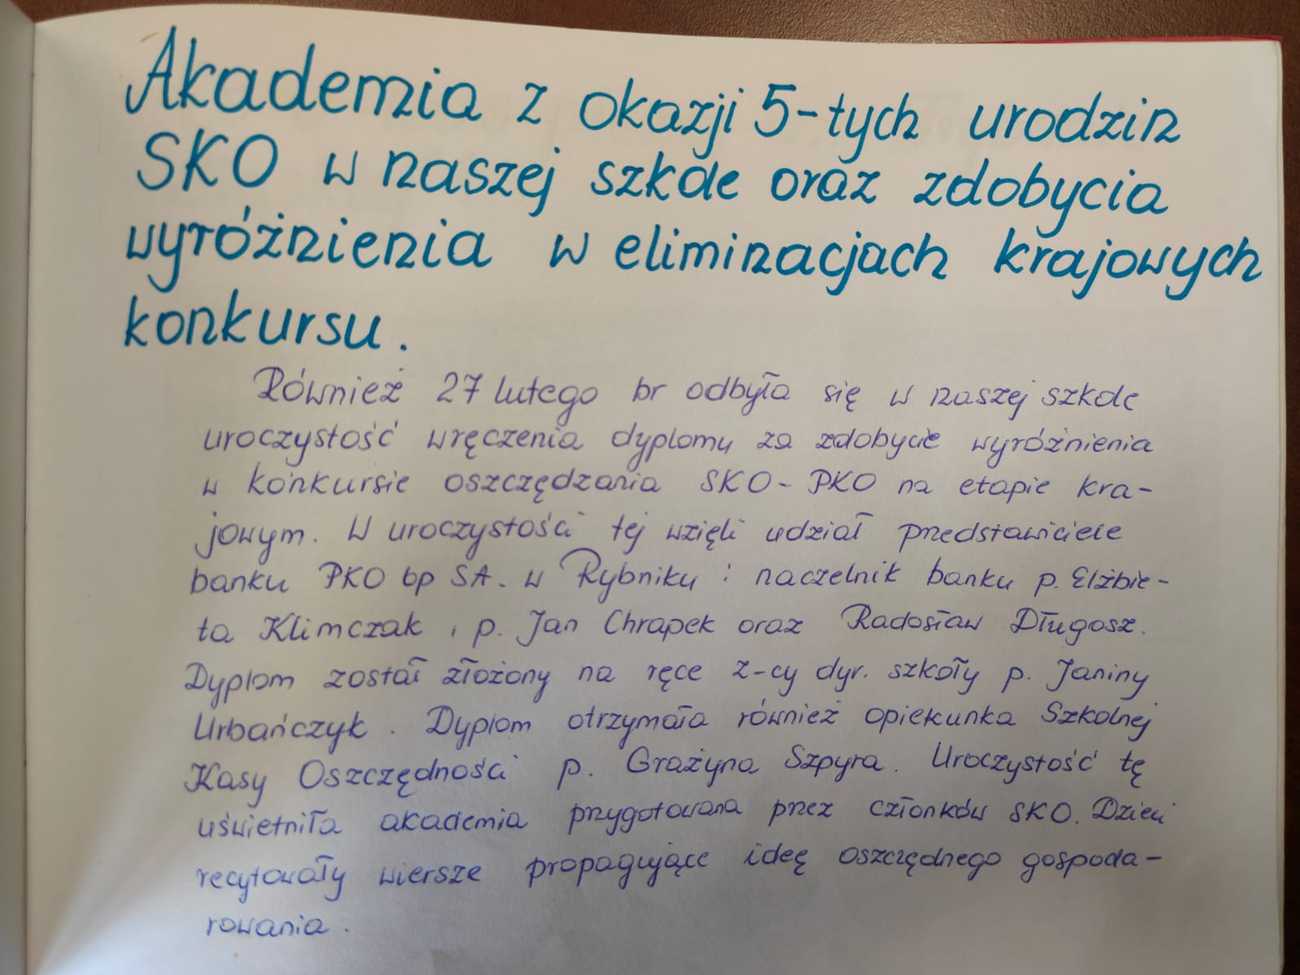 Akademia z okazji 5-tych urodzin
SKO w naszej szkole oraz zdobycia
wyróżnienia w eliminacjach krajowych
konkursu.
Również 27 lutego br odbyła się w naszej szkole
uroczystość wręczenia dyplomu za zdobycie wyróżnienia
w konkursie oszczędzania SKO - PKO na etapie kra-
jowym. W uroczystości tej wzięli udział przedstawiciele
banku PKO bp SA. w Rybniku : naczelnik banku p. Elżbie-
ta Klimczak, p. Jan Chrapek oraz Radosław Długosz.
Dyplom został złożony na ręce z-cy dyr. szkoły p. Janiny
Urbańczyk. Dyplom otrzymała również opiekunka Szkolnej
Kasy Oszczędności p. Grażyna Szpyra. Uroczystość tę
uświetniła akademia przygotowana przez członków SKO. Dzieci
recytowały wiersze propagujące ideę oszczędnego gospoda-
rowania.